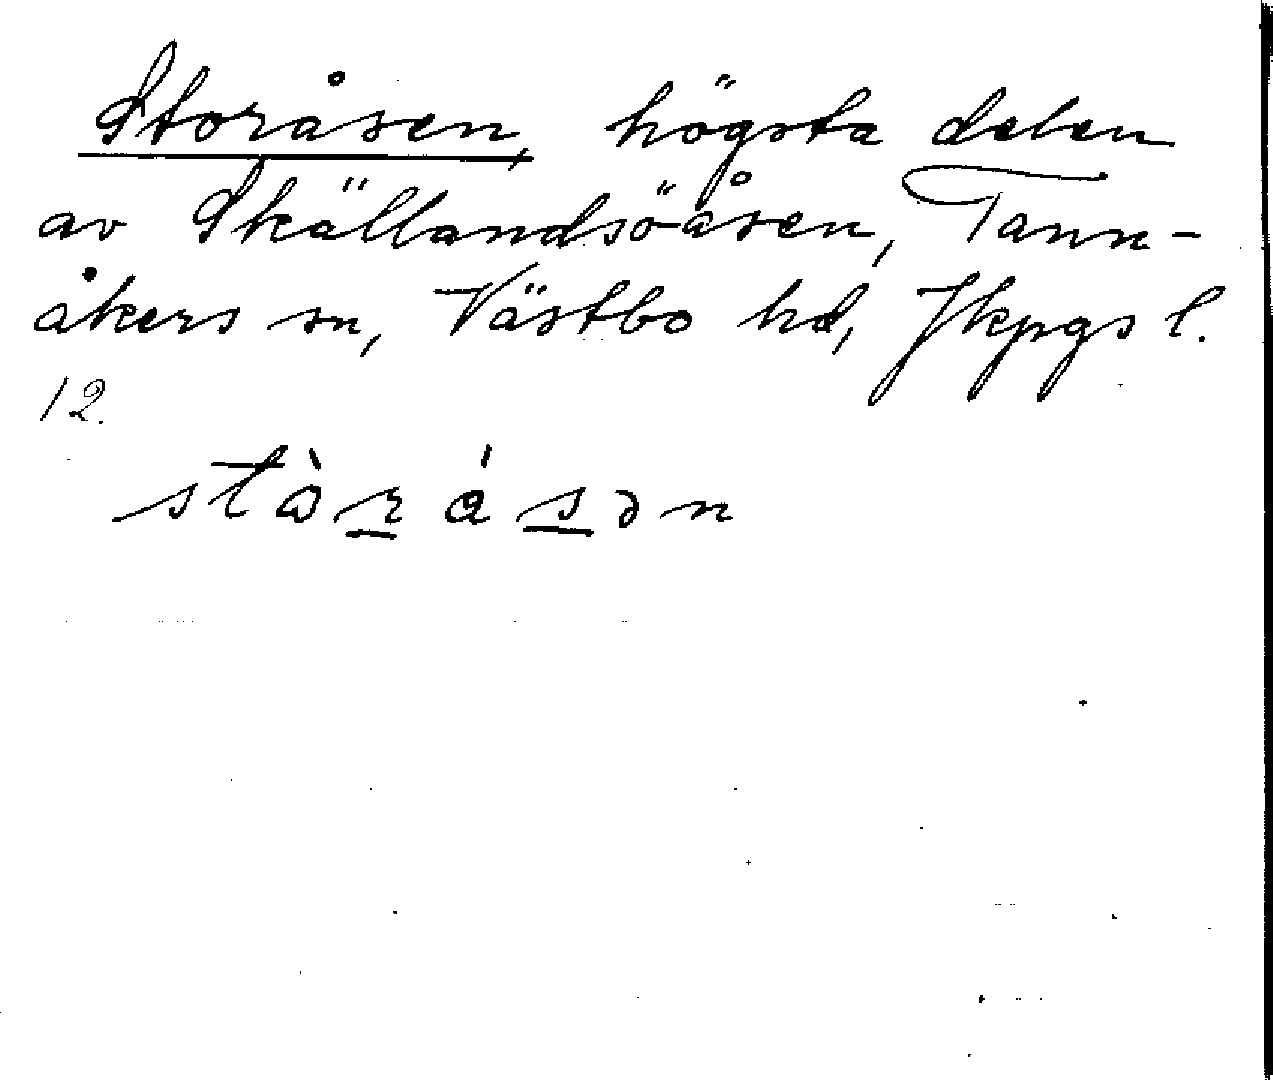 Storåsen, högsta delen
av Skällandsöåsen, Tann-
åkers sn, Västbo hd, Jkpgs l.
12.
stὼr ásən